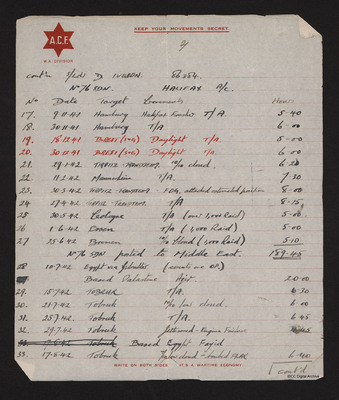 KEEP YOUR MOVEMENTS SECRET
A.C.F.
W.A. DIVISION
2/
cont'd D IVESON. 86284.
No 76 SDN. HALIFAX A/c.
No Date Target Comments Hours
17. 9.11.41 Hamburg Halifax T/A. 5-40
18. 30.11.41 Hamburg T/A 6-00
19. 18.12.41 BREST Daylight T/A. 5-00
20. 30.12.41 BREST Daylight T/A. 5-00
21. 29.1.42 TIRPITZ - TRONDHEIM. cloud. 6-20
22. 11.2.42 Mannheim T/A. 7.30
23. 30.3.42 TIRPITZ - TRONDHEIM - FOA. attacked estimated position 8-00
24. 27.4.42 TIRPITZ - TRONDHEIM. T/A 8-15
25. 30.5.42 Cologne T/A (over 1,000 Raid) 5-00
26. 1.6.42 Essen T/A (1,000 Raid) 5-00
27. 25.6.42 Bremen cloud (1,000 Raid) 5.10
No 76 SDN posted to Middle East. 189.45
28 10.7.42 Egypt via Gibraltar (counts as OP.)
Based Palestine 20-00
29. 15.7.42 TOBRUK T/A. 6.30
30. 21.7.42 Tobruk cloud. 6-00
31. 25.7.42 Tobruk T/A. 6 45
32. 29.7.42 Tobruk Jettisoned - Engine Failure
Tobruk Based Egypt Fayid
33. 17.8.42 Tobruk cloud - limited flak 6-40
WRITE ON BOTH SIDES. IT'S A WARTIME ECONOMY.
cont'd
IBCC Digital Archive